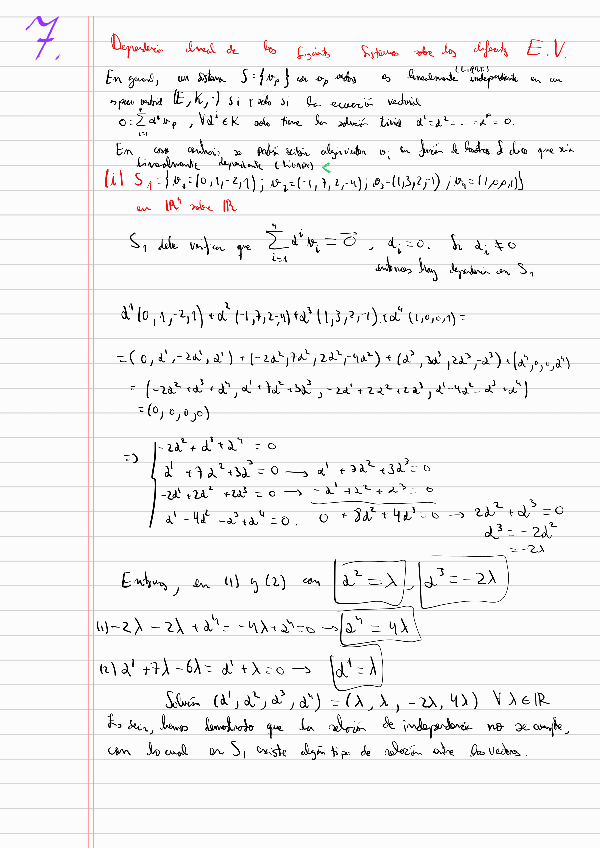 7.
Dependencia lineal de los siguientes sistemas sobre los diferentes E.V.
En general, un sistema S={v_p} con v_p vectores es linealmente (LIBRE) independiente en un
espacio vectorial (E, K, ·) si y solo si la ecuación vectorial
0 = ∑_{i=1} α^i v_p, ∀α^i ∈ K solo tiene la solución trivial α^1 = α^2 = ... = α^p = 0.
En caso contrario, se podrá escribir algún vector v_i en función de los otros y dice que son
linealmente dependientes
(i) S_1 = {v_1=(0,1,-2,1); v_2=(-1,7,2,-4); v_3=(1,3,2,-1); v_4=(1,0,0,1)}
en ℝ^4 sobre ℝ
S_1 debe verificar que ∑_{i=1}^4 α^i v_i = 0⃗, α_i = 0. Si α_i ≠ 0
entonces hay dependencia en S_1
α^1(0,1,-2,1) + α^2(-1,7,2,-4) + α^3(1,3,2,-1) + α^4(1,0,0,1) =
= (0, α^1, -2α^1, α^1) + (-2α^2, 7α^2, 2α^2, -4α^2) + (α^3, 3α^3, 2α^3, -α^3) + (α^4, 0, 0, α^4)
= (-2α^2 + α^3 + α^4, α^1 + 7α^2 + 3α^3, -2α^1 + 2α^2 + 2α^3, α^1 - 4α^2 - α^3 + α^4)
= (0, 0, 0, 0)
⇒ { -2α^2 + α^3 + α^4 = 0
α^1 + 7α^2 + 3α^3 = 0 → α^1 + 7α^2 + 3α^3 = 0
-2α^1 + 2α^2 + 2α^3 = 0 → -α^1 + α^2 + α^3 = 0
α^1 - 4α^2 - α^3 + α^4 = 0. 0 + 8α^2 + 4α^3 = 0 → 2α^2 + α^3 = 0
α^3 = -2α^2
= -2λ
Entonces, en (1) y (2) con α^2 = λ, α^3 = -2λ
(1) -2λ - 2λ + α^4 = -4λ + α^4 = 0 → α^4 = 4λ
(2) α^1 + 7λ - 6λ = α^1 + λ = 0 → α^1 = λ
Solución (α^1, α^2, α^3, α^4) = (λ, λ, -2λ, 4λ) ∀ λ ∈ ℝ
Es decir, hemos demostrado que la relación de independencia no se cumple,
con lo cual en S_1 existe algún tipo de relación entre los vectores.